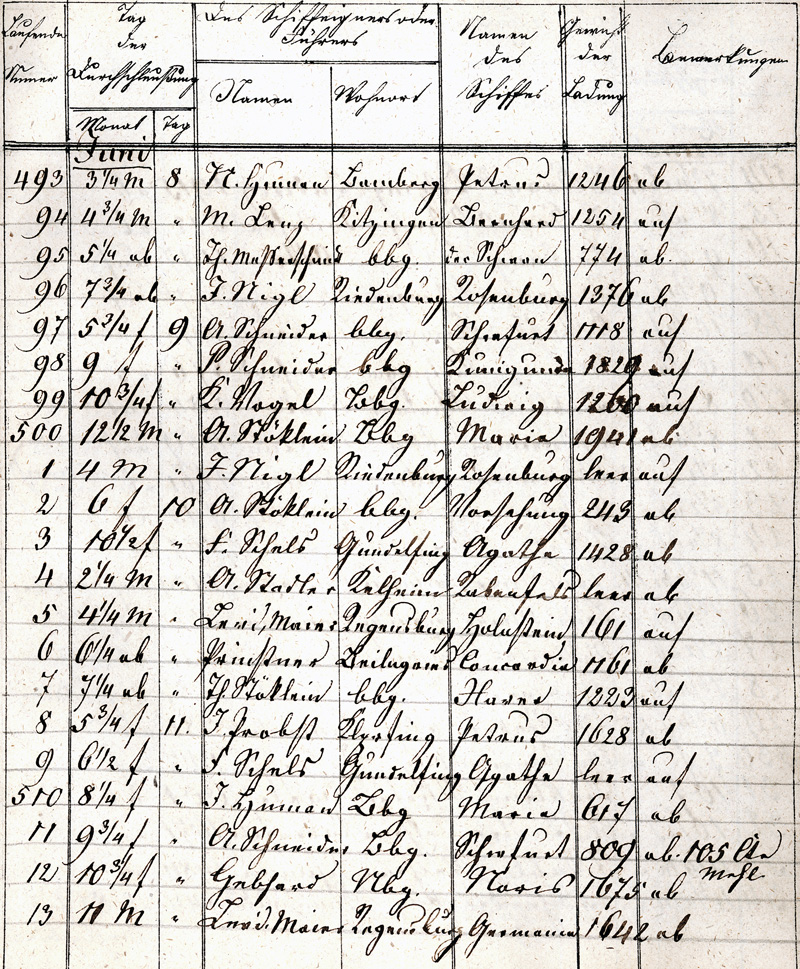 Laufende Numer | Tag der Durchschleußung | Des Schiffeigners oder Führers | Namen des Schiffes | Gewicht der Ladung | Bemerkungen
Monat | Tag | Namen | Wohnort
Juni
493 3 1/4 M 8 Bamberg Petrus 1246 ab
94 4 3/4 M " M. Lenz Kitzingen Bernhard 1254 auf
95 5 1/4 ab " Th. Messerschmid bbg. der Schwan 774 ab.
96 7 3/4 ab " J. Nigl Riedenburg Rosenburg 1376 ab
97 5 3/4 f 9 A. Schneider bbg. Schwfurt 1118 auf
98 9 f " P. Schneider bbg Kunigunde 1829 auf
99 10 3/4 f " K. Vogel bbg. Ludwig 1200 auf
500 12 1/2 M " A. Stöklein Bbg Maria 1941 ab
1 4 M " J. Nigl Riedenburg Rosenburg leer auf
2 6 f 10 A. Stöklein bbg. Vorsehung 243 ab
3 10 1/2 f " F. Schels Gundelfing Agathe 1428 ab
4 2 1/4 M " A. Stadler Kelheim Rabenfels leer ab
5 4 1/4 M " Levi, Maier Regensburg Holnstein 161 auf
6 6 1/4 ab " Prinstner Beilngries Concordia 1161 ab
7 7 1/4 ab " Th. Stöklein bbg. 1223 auf
8 5 3/4 f 11. J. Probst Petrus 1628 ab
9 6 1/2 f " F. Schels Gundelfing Agathe leer auf
510 8 1/4 f " J. Human Bbg Maria 617 ab
11 9 3/4 f " A. Schneider Bbg. Schwfurt 809 ab. 105 Ctr
Mehl
12 10 3/4 f " Gebhard Nbg. Noris 1675 ab
13 11 M " Levi. Maier Regensburg Germania 1642 ab